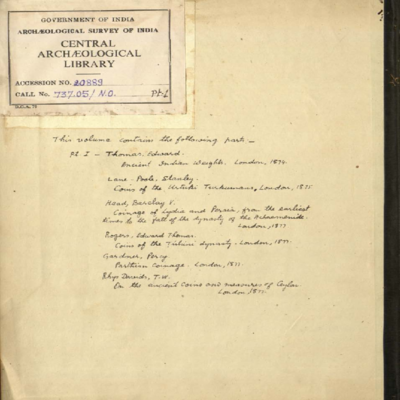 GOVERNMENT OF INDIA
ARCHÆOLOGICAL SURVEY OF INDIA
CENTRAL
ARCHÆOLOGICAL
LIBRARY
ACCESSION NO. 20889
CALL No. 737.05/N.O. Pt-1
This volume contains the following parts—
Pt I — Thomas, Edward.
Ancient Indian Weights. London, 1874.
Lane-Poole, Stanley.
Coins of the Urtuki Turkumans, London, 1875
Head, Barclay V.
Coinage of Lydia and Persia, from the earliest
times to the fall of the dynasty of the Achaemenidae.
London, 1877
Rogers, Edward Thomas.
Coins of the Tuluni dynasty. London, 1877.
Gardner, Percy
Parthian Coinage. London, 1877.
Rhys Davids, T.W.
On the ancient coins and measures of Ceylon
London, 1877.